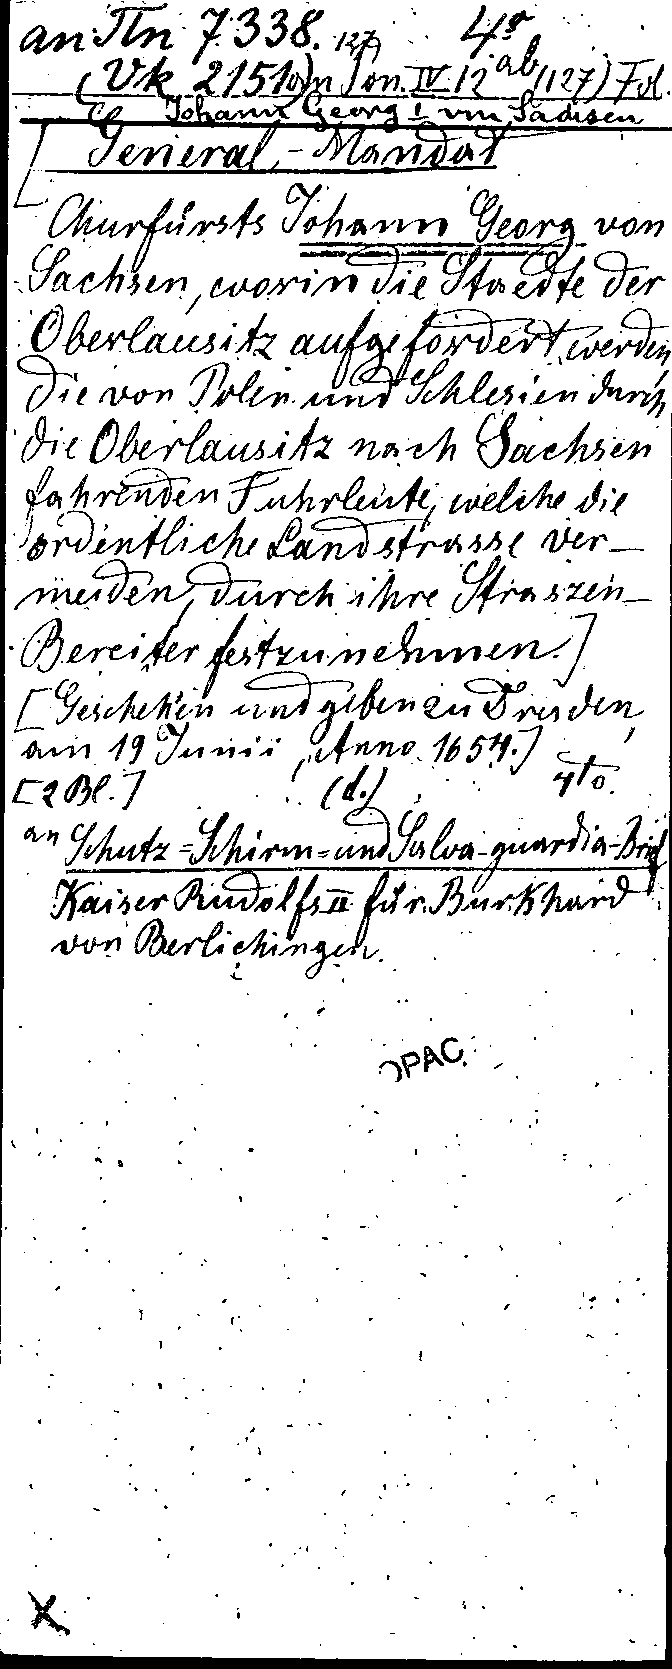 an Tln 7338. 127 4°
(Vk 2151a) n Pon. IV 12 ab (127) Fol.
Johann Georg I von Sachsen
[General-Mandat
Churfürsts Johann Georg von
Sachsen, worin die Staedte der
Oberlausitz aufgefordert werden,
die von Polen und Schlesien durch
die Oberlausitz nach Sachsen
fahrenden Fuhrleute, welche die
ordentliche Landstrasse ver-
meiden, durch ihre Straszen-
Bereiter festzunehmen.]
[Geschehen und geben zu Dresden,
am 19 Junii, Anno 1654.]
[2 Bl.] (d.) 4to.
an Schutz=Schirm=und Salva-guardia-Brief
Kaiser Rudolfs II für Burkhard
von Berlichingen.
OPAC
X